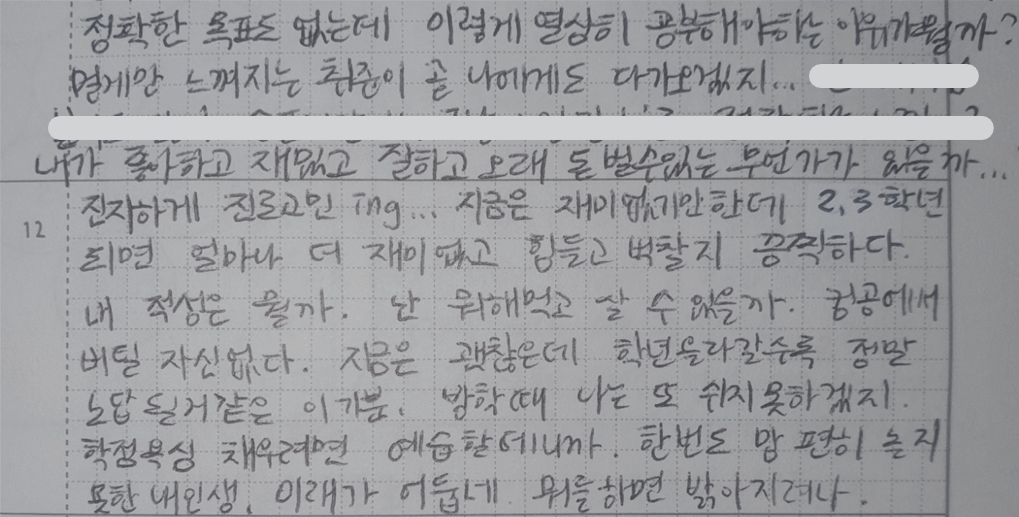 정확한 목표도 없는데 이렇게 열심히 공부해야하는 이유가뭘까?
멀게만 느껴지는 취준이 곧 나에게도 다가오겠지...
내가 좋아하고 재밌고 잘하고 오래 돈 벌수있는 무언가가 있을까...
12 진지하게 진로고민 ing... 지금은 재미없기만한데 2,3학년
되면 얼마나 더 재미없고 힘들고 벅찰지 끔찍하다.
내 적성은 뭘까. 난 뭐해먹고 살 수 있을까. 컴공에서
버틸 자신없다. 지금은 괜찮은데 학년올라갈수록 정말
노답될거같은 이기분. 방학때 나는 또 쉬지못하겠지.
학점욕심 채우려면 예습할테니까. 한번도 맘 편히 놀지
못한 내인생. 미래가 어둡네 뭐를하면 밝아지려나.